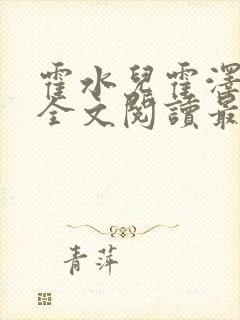 霍水兒霍澤
全文閱讀最
青萍